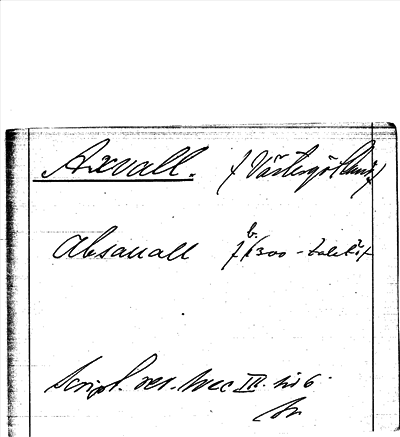 Axvall. (Västergötland)
Absauall b. 1300-talet
Script. rer. svec III.